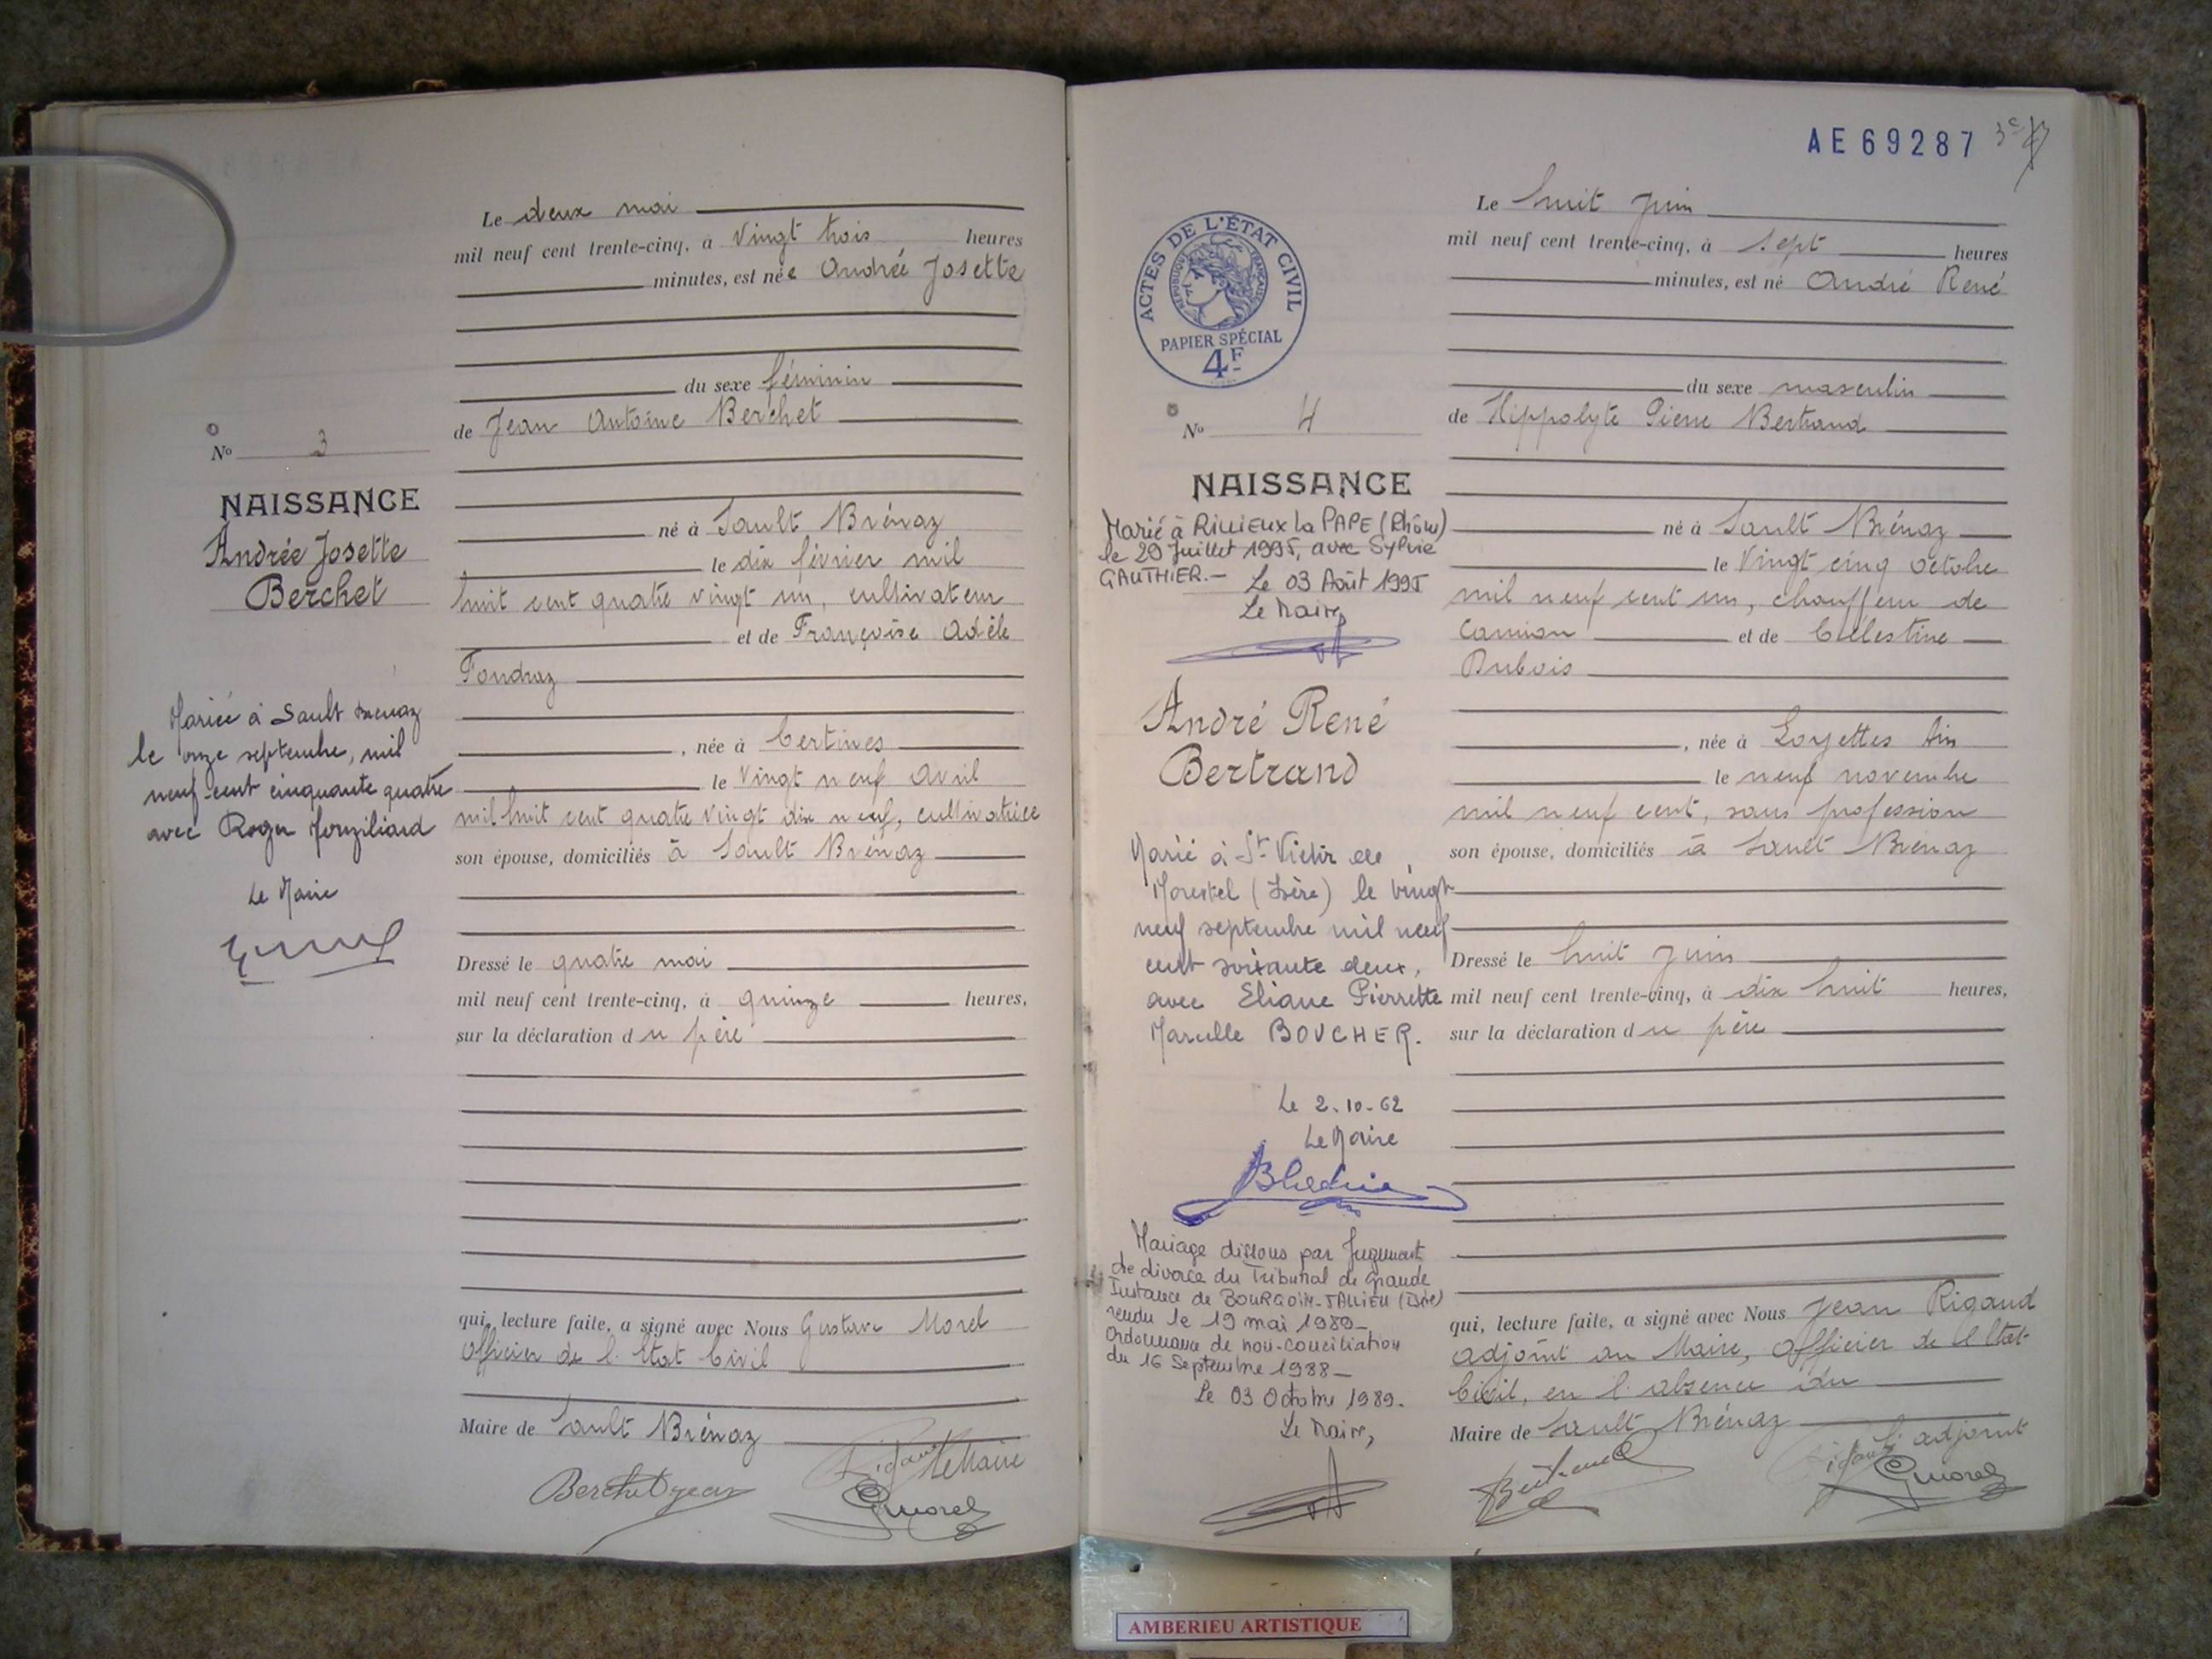 Le deux mai
mil neuf cent trente-cinq, à vingt trois heures
minutes, est née Andrée Josette
du sexe féminin
de Jean Antoine Berchet
No 3
NAISSANCE
Andrée Josette
Berchet
né à Sault Brénaz
le dix février mil
huit cent quatre vingt un, cultivateur
et de Françoise Adèle
Fondraz
, née à Certines
le vingt neuf avril
mil huit cent quatre vingt dix neuf, cultivatrice
son épouse, domiciliés à Sault Brénaz
Mariée à Sault Brenaz
le onze septembre, mil
neuf cent cinquante quatre
avec Roger
Le Maire
Dressé le quatre mai
mil neuf cent trente-cinq, à quinze heures,
sur la déclaration du père
qui, lecture faite, a signé avec Nous Gustave Morel
Officier de l'Etat Civil
Maire de Sault Brénaz
Le Maire
Berchet Jean
Gmorel
AE 69287
Le huit juin
mil neuf cent trente-cinq, à sept heures
minutes, est né André René
ACTES DE L'ÉTAT CIVIL
RÉPUBLIQUE FRANÇAISE
PAPIER SPÉCIAL
4F
du sexe masculin
de Hippolyte Pierre Bertrand
No 4
NAISSANCE
Marié à RILLIEUX La PAPE (Rhône)
le 29 Juillet 1995, avec Sylvie
GAUTHIER.- Le 03 Août 1995
Le Maire,
André René
Bertrand
né à Sault Brénaz
le vingt cinq octobre
mil neuf cent un, chauffeur de
camion et de Célestine
Dubois
, née à Loyettes Ain
le neuf novembre
mil neuf cent, sans profession
son épouse, domiciliés à Sault Brénaz
Marié à St Victor de
Morestel (Isère) le vingt
neuf septembre mil neuf
cent soixante deux,
avec Eliane Pierrette
Marcelle BOUCHER.
Le 2.10.62
Le Maire
Dressé le huit juin
mil neuf cent trente-cinq, à dix huit heures,
sur la déclaration du père
Mariage dissous par Jugement
de divorce du Tribunal de Grande
Instance de BOURGOIN-JALLIEU (Isère)
rendu le 19 mai 1989-
Ordonnance de non-conciliation
du 16 Septembre 1988-
Le 03 Octobre 1989.
Le Maire,
qui, lecture faite, a signé avec Nous Jean Rigaud
adjoint au Maire, Officier de l'Etat-
Civil, en l'absence du
Maire de Sault Brénaz
l'adjoint
Bertrand
Gmorel
AMBERIEU ARTISTIQUE